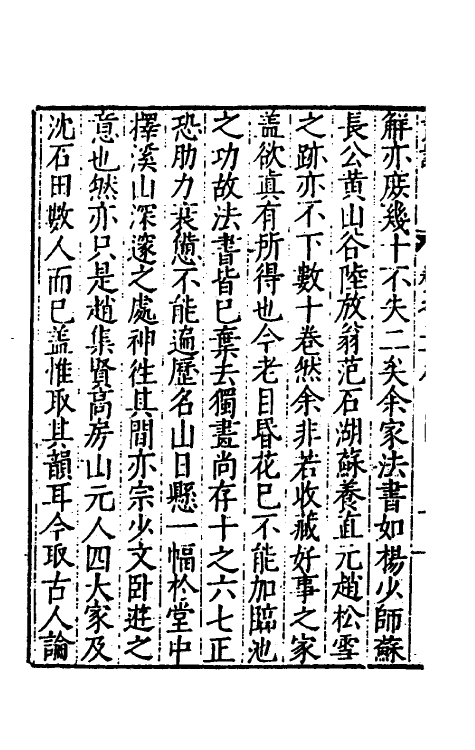 解亦庻幾十不失二矣余家法書如楊少師蘇
長公黄山谷陸放翁范石湖蘇養直元趙松雪
之跡亦不下數十卷然余非若收藏好事之家
盖欲真有所得也今老目昏花已不能加臨池
之功故法書皆已棄去獨畫尚存十之六七正
恐肋力衰憊不能遍歷名山日懸一幅於堂中
擇溪山深邃之處神徃其間亦宗少文卧遊之
意也然亦只是趙集賢高房山元人四大家及
沈石田數人而已盖惟取其韻耳今取古人論